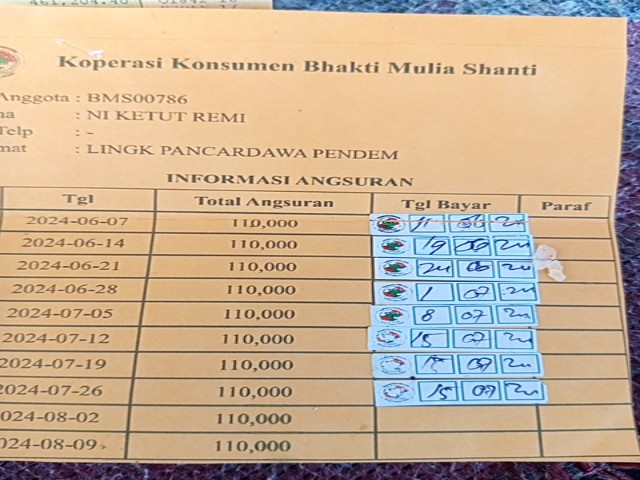 461,204.40
Koperasi Konsumen Bhakti Mulia Shanti
Anggota : BMS00786
na : NI KETUT REMI
Telp : -
mat : LINGK PANCARDAWA PENDEM
INFORMASI ANGSURAN
Tgl Total Angsuran Tgl Bayar Paraf
2024-06-07 110,000 11 06 24
2024-06-14 110,000 19 06 24
2024-06-21 110,000 24 06 24
2024-06-28 110,000 1 07 24
2024-07-05 110,000 8 07 24
2024-07-12 110,000 15 07 24
2024-07-19 110,000 07 24
2024-07-26 110,000 15 07 24
024-08-02 110,000
024-08-09 110,000